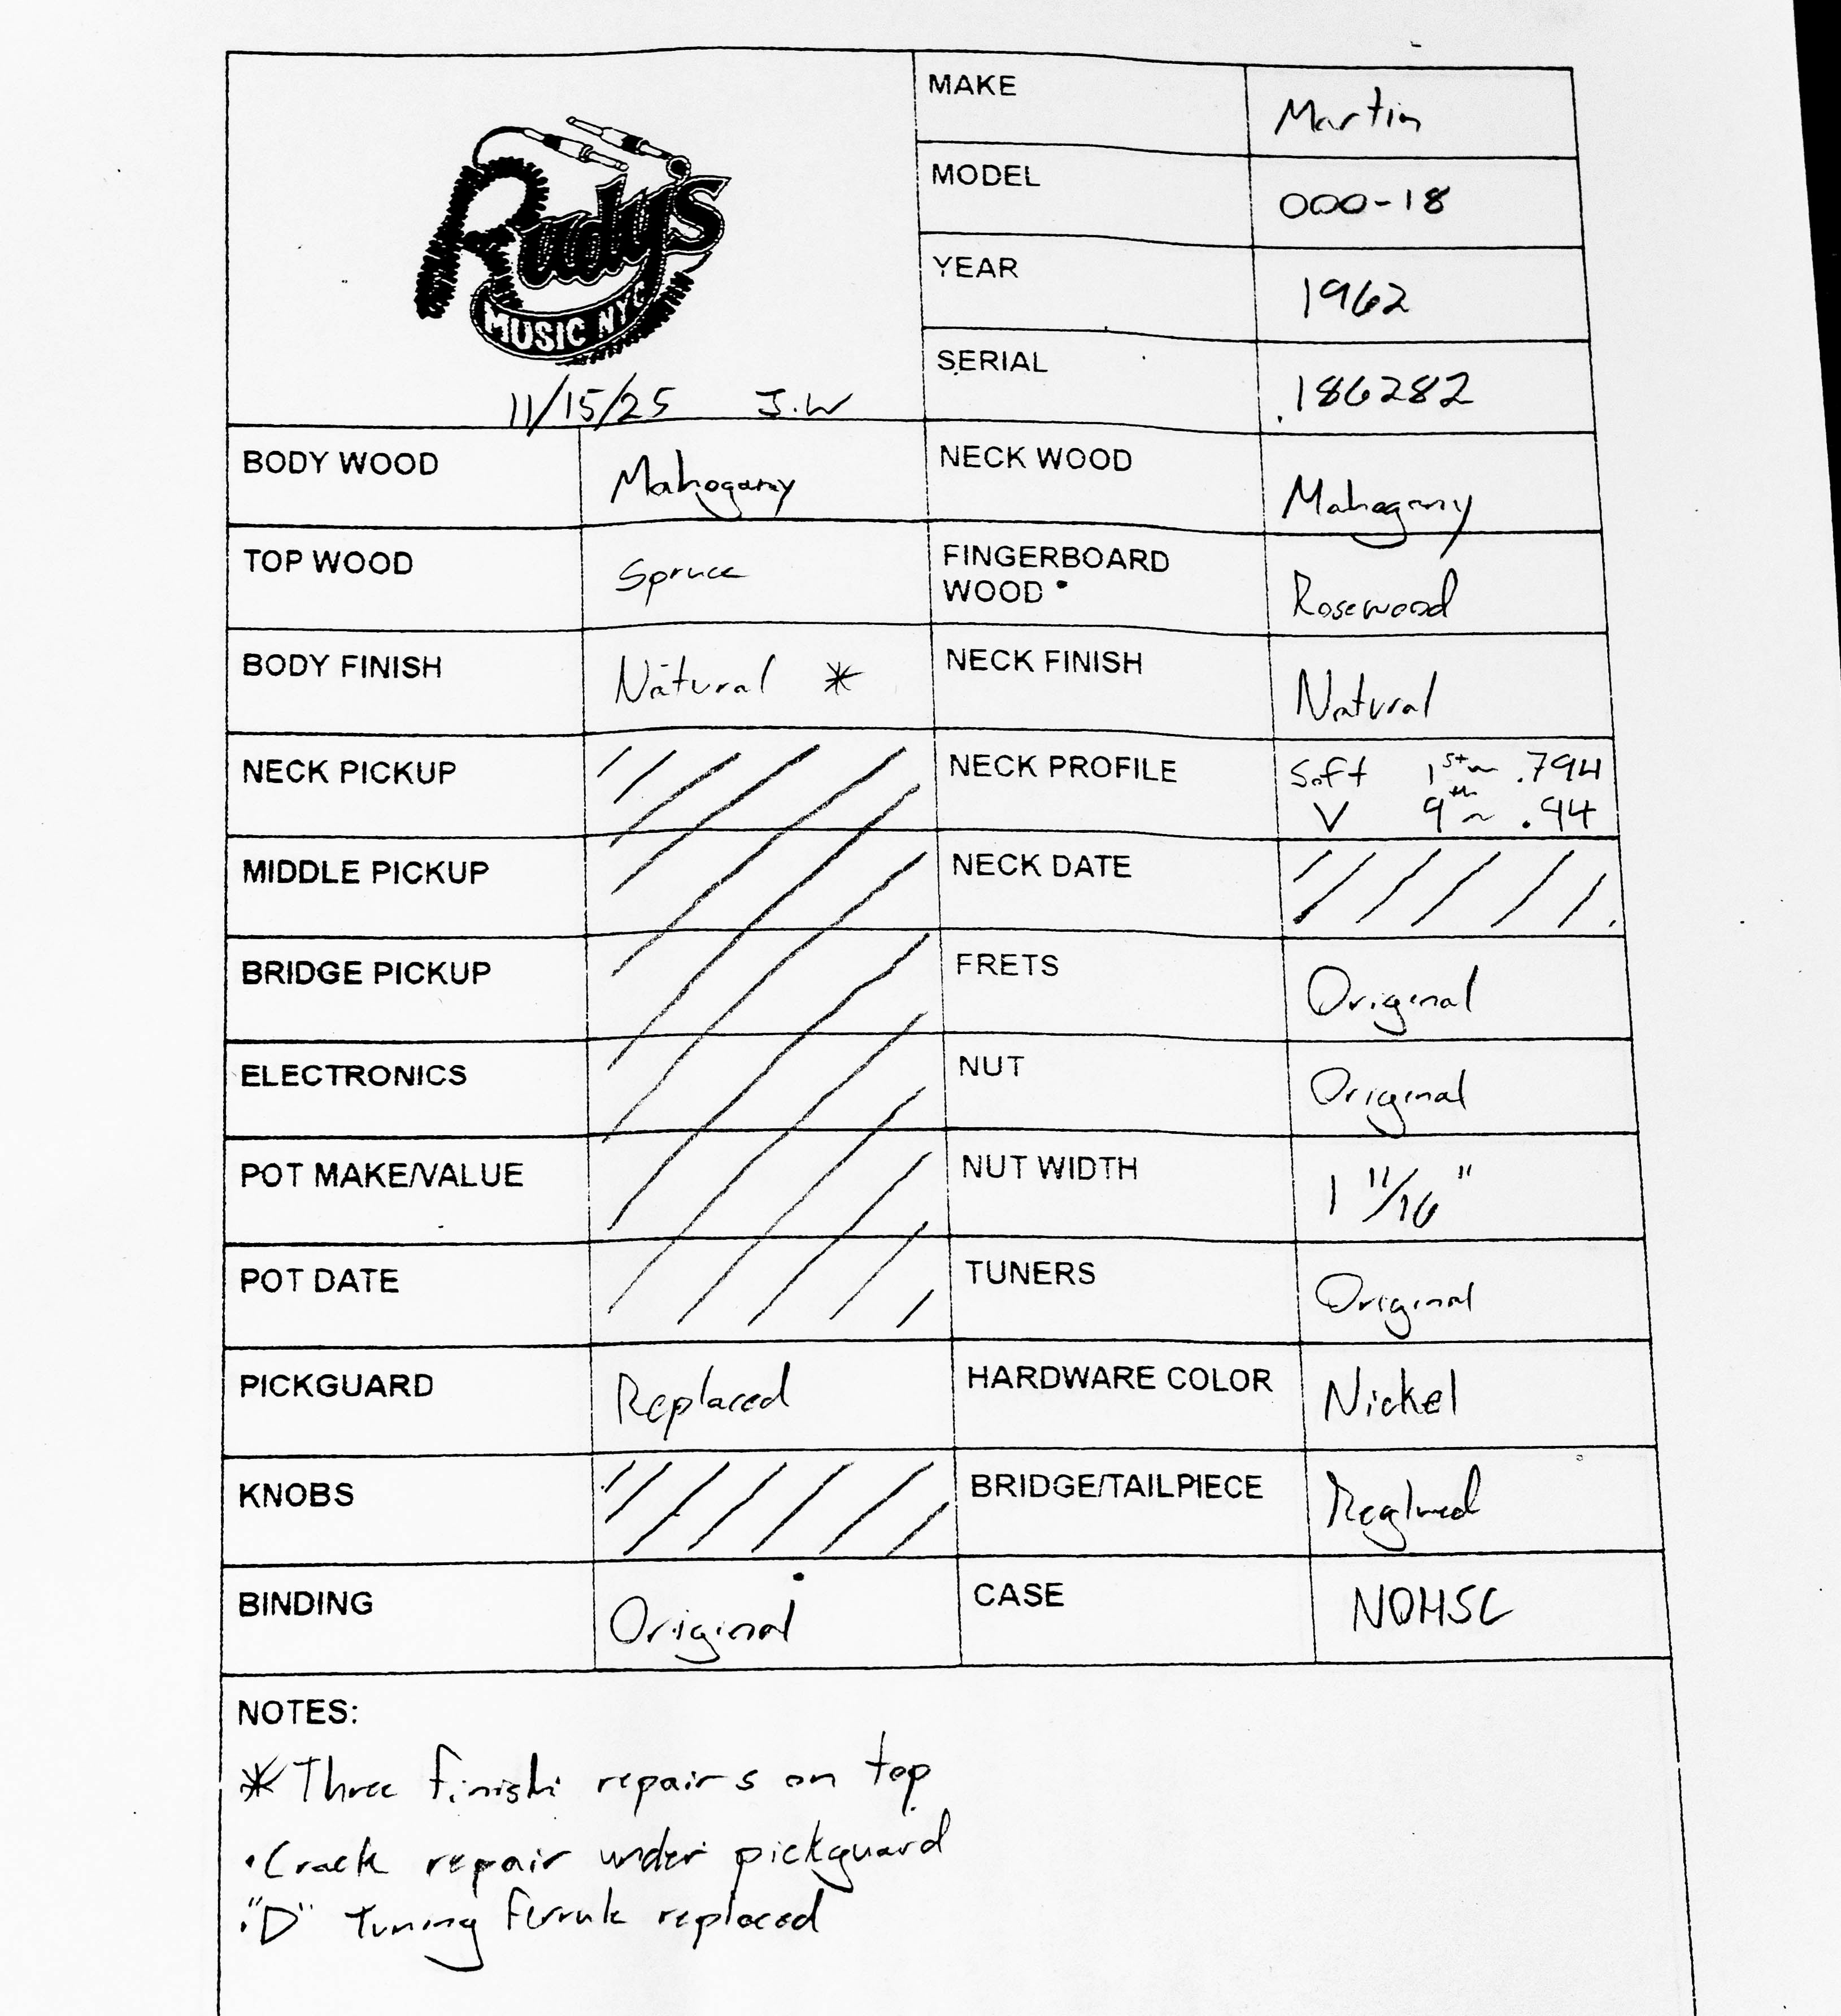 Rudy's
MUSIC NYC
11/15/25 J.W
MAKE Martin
MODEL 000-18
YEAR 1962
SERIAL 186282
BODY WOOD Mahogany NECK WOOD Mahogany
TOP WOOD Spruce FINGERBOARD WOOD Rosewood
BODY FINISH Natural * NECK FINISH Natural
NECK PICKUP NECK PROFILE Soft V 1st ~ .794 9th ~ .94
MIDDLE PICKUP NECK DATE
BRIDGE PICKUP FRETS Original
ELECTRONICS NUT Original
POT MAKE/VALUE NUT WIDTH 1 11/16"
POT DATE TUNERS Original
PICKGUARD Replaced HARDWARE COLOR Nickel
KNOBS BRIDGE/TAILPIECE Reglued
BINDING Original CASE NOHSC
NOTES:
* Three finish repairs on top
• Crack repair under pickguard
• "D" tuning ferrule replaced